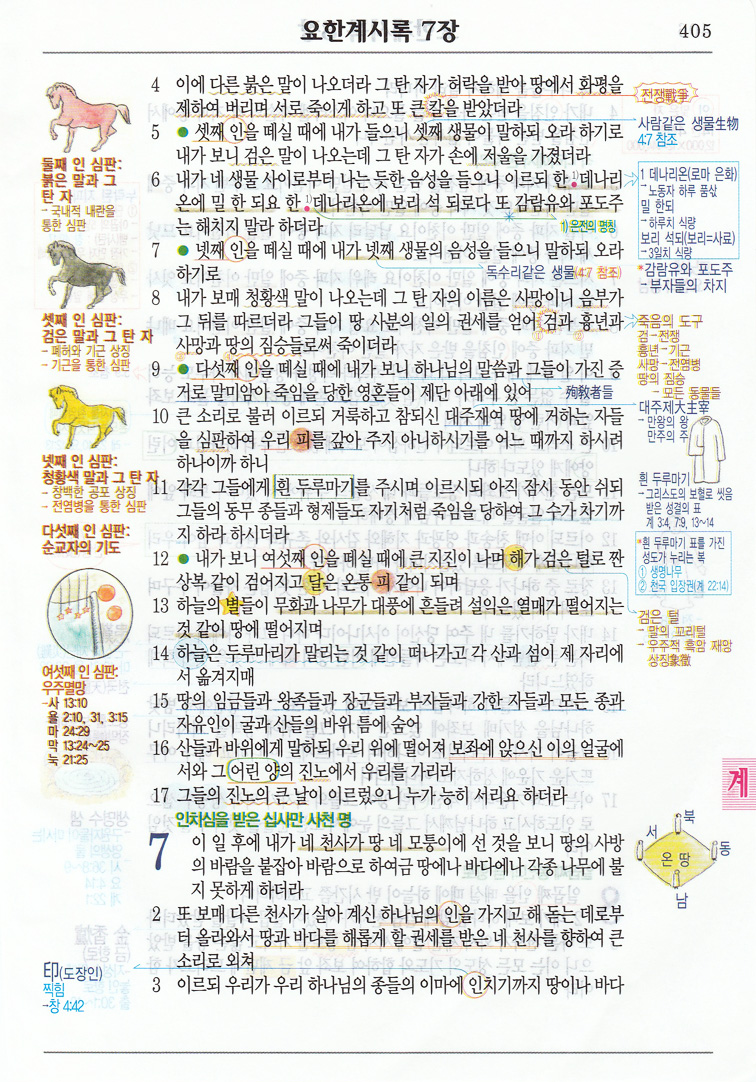 요한계시록 7장
405
4 이에 다른 붉은 말이 나오더라 그 탄 자가 허락을 받아 땅에서 화평을
제하여 버리며 서로 죽이게 하고 또 큰 칼을 받았더라
5 ● 셋째 인을 떼실 때에 내가 들으니 셋째 생물이 말하되 오라 하기로
내가 보니 검은 말이 나오는데 그 탄 자가 손에 저울을 가졌더라
6 내가 네 생물 사이로부터 나는 듯한 음성을 들으니 이르되 한 1)데나리
온에 밀 한 되요 한 1)데나리온에 보리 석 되로다 또 감람유와 포도주
는 해치지 말라 하더라
1) 은전의 명칭
7 ● 넷째 인을 떼실 때에 내가 넷째 생물의 음성을 들으니 말하되 오라
하기로
독수리같은 생물(4:7 참조)
8 내가 보매 청황색 말이 나오는데 그 탄 자의 이름은 사망이니 음부가
그 뒤를 따르더라 그들이 땅 사분의 일의 권세를 얻어 검과 흉년과
사망과 땅의 짐승들로써 죽이더라
9 ● 다섯째 인을 떼실 때에 내가 보니 하나님의 말씀과 그들이 가진 증
거로 말미암아 죽임을 당한 영혼들이 제단 아래에 있어
殉敎者들
10 큰 소리로 불러 이르되 거룩하고 참되신 대주재여 땅에 거하는 자들
을 심판하여 우리 피를 갚아 주지 아니하시기를 어느 때까지 하시려
하나이까 하니
11 각각 그들에게 흰 두루마기를 주시며 이르시되 아직 잠시 동안 쉬되
그들의 동무 종들과 형제들도 자기처럼 죽임을 당하여 그 수가 차기까
지 하라 하시더라
12 ● 내가 보니 여섯째 인을 떼실 때에 큰 지진이 나며 해가 검은 털로 짠
상복 같이 검어지고 달은 온통 피 같이 되며
13 하늘의 별들이 무화과 나무가 대풍에 흔들려 설익은 열매가 떨어지는
것 같이 땅에 떨어지며
14 하늘은 두루마리가 말리는 것 같이 떠나가고 각 산과 섬이 제 자리에
서 옮겨지매
15 땅의 임금들과 왕족들과 장군들과 부자들과 강한 자들과 모든 종과
자유인이 굴과 산들의 바위 틈에 숨어
16 산들과 바위에게 말하되 우리 위에 떨어져 보좌에 앉으신 이의 얼굴에
서와 그 어린 양의 진노에서 우리를 가리라
17 그들의 진노의 큰 날이 이르렀으니 누가 능히 서리요 하더라
인치심을 받은 십사만 사천 명
7 이 일 후에 내가 네 천사가 땅 네 모퉁이에 선 것을 보니 땅의 사방
의 바람을 붙잡아 바람으로 하여금 땅에나 바다에나 각종 나무에 불
지 못하게 하더라
2 또 보매 다른 천사가 살아 계신 하나님의 인을 가지고 해 돋는 데로부
터 올라와서 땅과 바다를 해롭게 할 권세를 받은 네 천사를 향하여 큰
소리로 외쳐
3 이르되 우리가 우리 하나님의 종들의 이마에 인치기까지 땅이나 바다
둘째 인 심판:
붉은 말과 그
탄 자
→ 국내적 내란을
통한 심판
셋째 인 심판:
검은 말과 그 탄 자
→ 폐허와 기근 상징
→ 기근을 통한 심판
넷째 인 심판:
청황색 말과 그 탄 자
→ 창백한 공포 상징
→ 전염병을 통한 심판
다섯째 인 심판:
순교자의 기도
여섯째 인 심판:
우주멸망
→사 13:10
욜 2:10, 31, 3:15
마 24:29
막 13:24~25
눅 21:25
印(도장인)
찍힘
→창 4:42
전쟁戰爭
사람같은 생물生物
4:7 참조
1 데나리온(로마 은화)
→ 노동자 하루 품삯
밀 한되
→ 하루치 식량
보리 석되(보리=사료)
→ 3일치 식량
*감람유와 포도주
→ 부자들의 차지
죽음의 도구
검→전쟁
흉년→기근
사망→전염병
땅의 짐승
→ 모든 동물들
대주제大主宰
→ 만왕의 왕
만주의 주
흰 두루마기
→ 그리스도의 보혈로 씻음
받은 성결의 표
계 3:4, 7:9, 13~14
*흰 두루마기 표를 가진
성도가 누리는 복
① 생명나무
② 천국 입장권(계 22:14)
검은 털
→ 말의 꼬리털
→ 우주적 흑암 재앙
상징象徵
계
북
서
동
온 땅
남